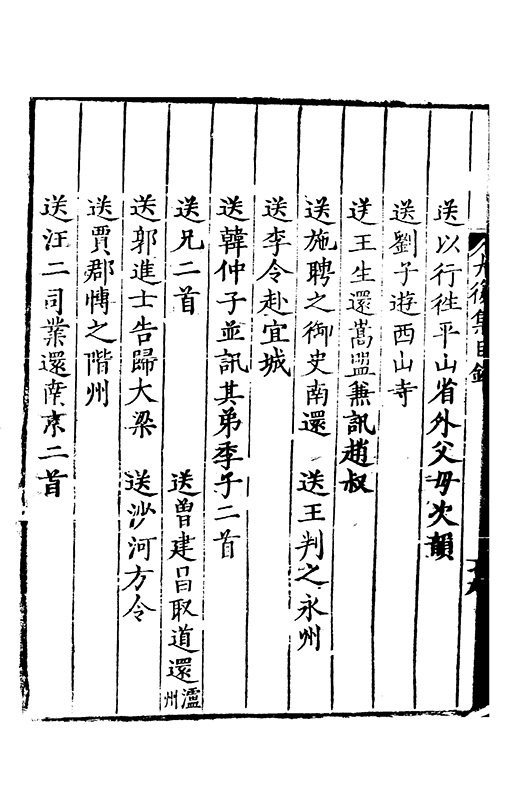 送以行徃平山省外父母次韻
送劉子遊西山寺
送王生還嵩盟兼訊趙叔
送施聘之御史南還　送王判之永州
送李令赴宜城
送韓仲子並訊其弟季子二首
送兄二首　送曽建昌取道還瀘州
送郭進士告歸大梁　送沙河方令
送賈郡愽之階州
送汪二司業還南京二首